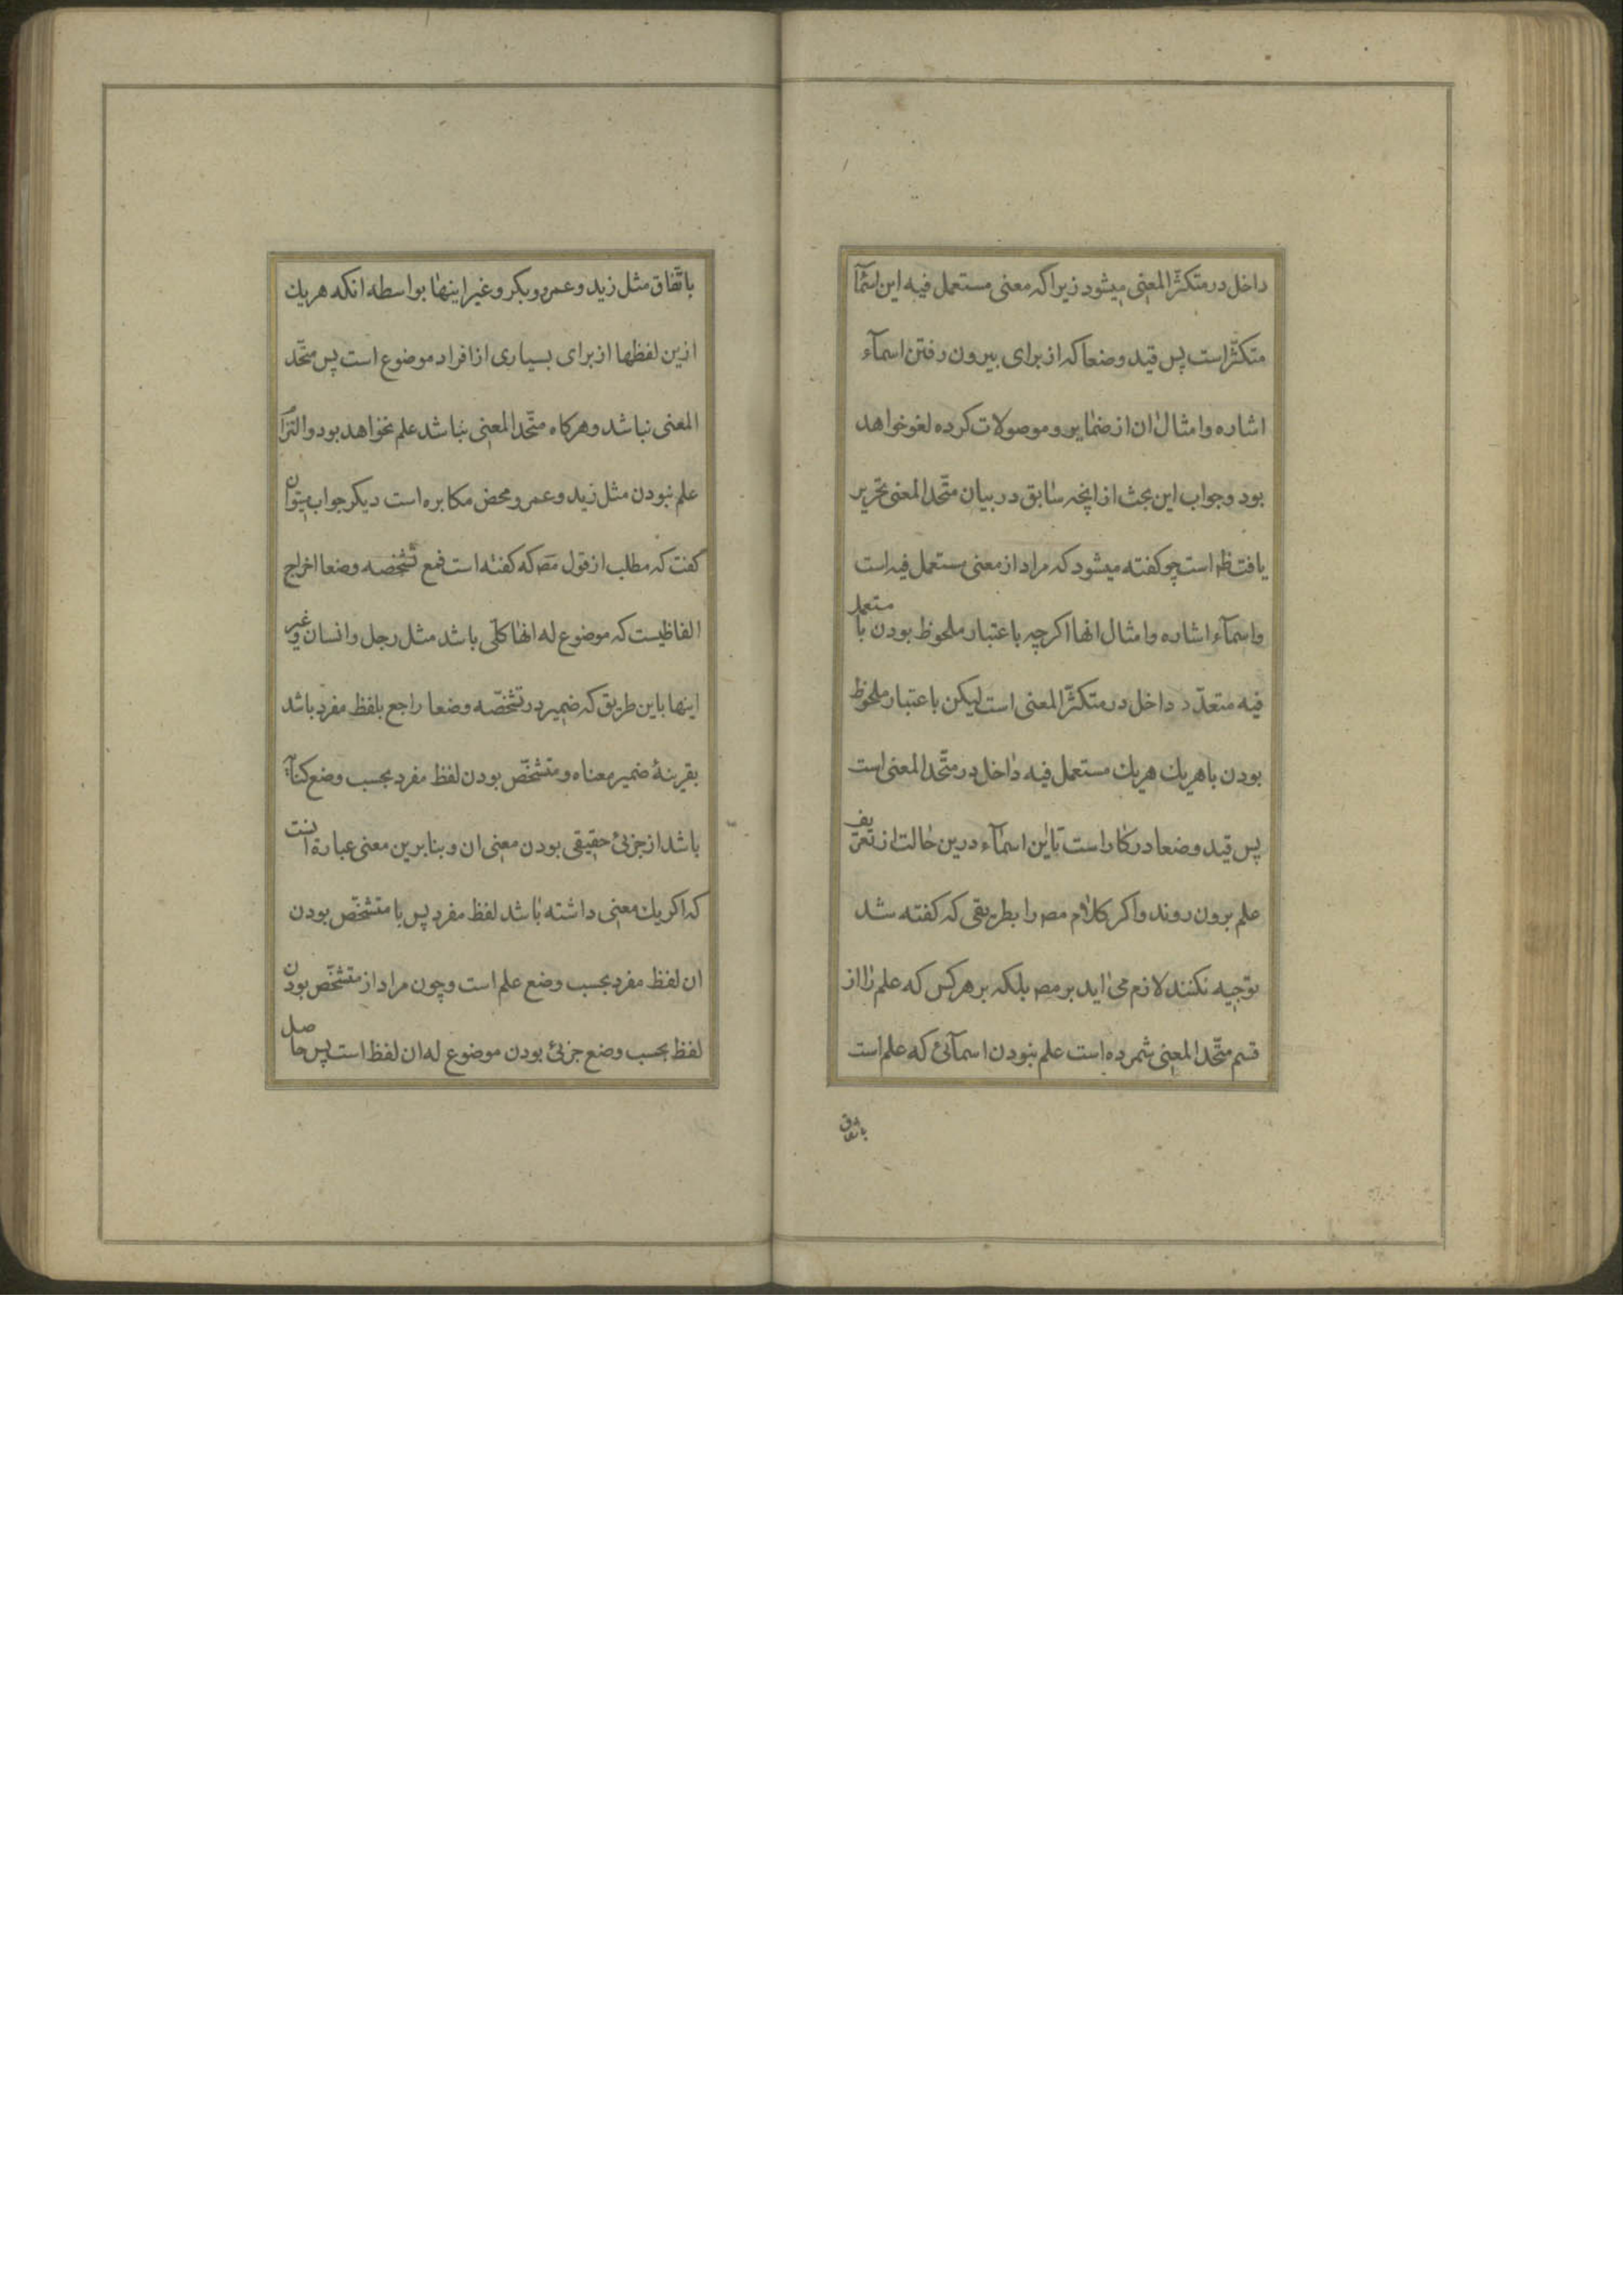 داخل در متکثّر المعنی میشود زیرا که معنی مستعمل فیه این اسمآ
متکثّر است پس قید وضعا که از برای بیرون رفتن اسمآء
اشاره و امثال ان از ضمایر و موصولات کرده لغو خواهد
بود و جواب این بحث از انچه سابق در بیان متّحد المعنی تحریر
یافت ظه است چو کفته میشود که مراد از معنی مستعمل فیه است
و اسمآء اشاره و امثال انها اکرچه باعتبار ملحوظ بودن با مستعمل
فیه متعدّد داخل در متکثّر المعنی است لیکن باعتبار ملحوظ
بودن با هریك هریك مستعمل فیه داخل در متّحد المعنی است
پس قید وضعا در کار است تا این اسمآء درین حالت از تعریف
علم برون روند و اکر کلام مصه را بطریقی که کفته شد
توجیه نکنند لازم می اید بر مصه بلکه بر هر کس که علم را از
قسم متّحد المعنی شمرده است علم نبودن اسمآئی که علم است
باتفاق
باتّفاق مثل زید و عمرو و بکر و غیر اینها بواسطه انکه هریك
ازین لفظها از برای بسیاری از افراد موضوع است پس متّحد
المعنی نباشد و هرکاه متّحد المعنی نباشد علم نخواهد بود و التزآم
علم نبودن مثل زید و عمرو محض مکابره است دیکر جواب میتوان
کفت که مطلب از قول مصه که کفته است فمع تشخّصه وضعا اخراج
الفاظیست که موضوع له انها کلّی باشد مثل رجل و انسان و غیر
اینها باین طریق که ضمیر در تشخّصه وضعا راجع بلفظ مفرد باشد
بقرینهٔ ضمیر معناه و متشخّص بودن لفظ مفرد بحسب وضع کنآیة
باشد از جزئی حقیقی بودن معنی ان و بنابرین معنی عبارة انست
که اکر یك معنی داشته باشد لفظ مفرد پس با متشخّص بودن
ان لفظ مفرد بحسب وضع علم است و چون مراد از متشخّص بودن
لفظ بحسب وضع جزئی بودن موضوع له ان لفظ است پس حاصل